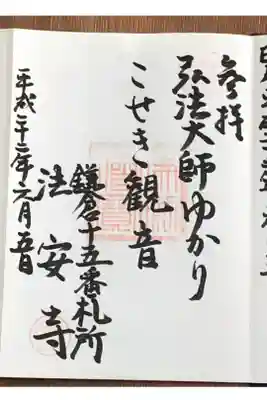 参拝
弘法大師ゆかり
こせき観音
鎌倉十五番札所
法安寺
平成二十二年六月五日